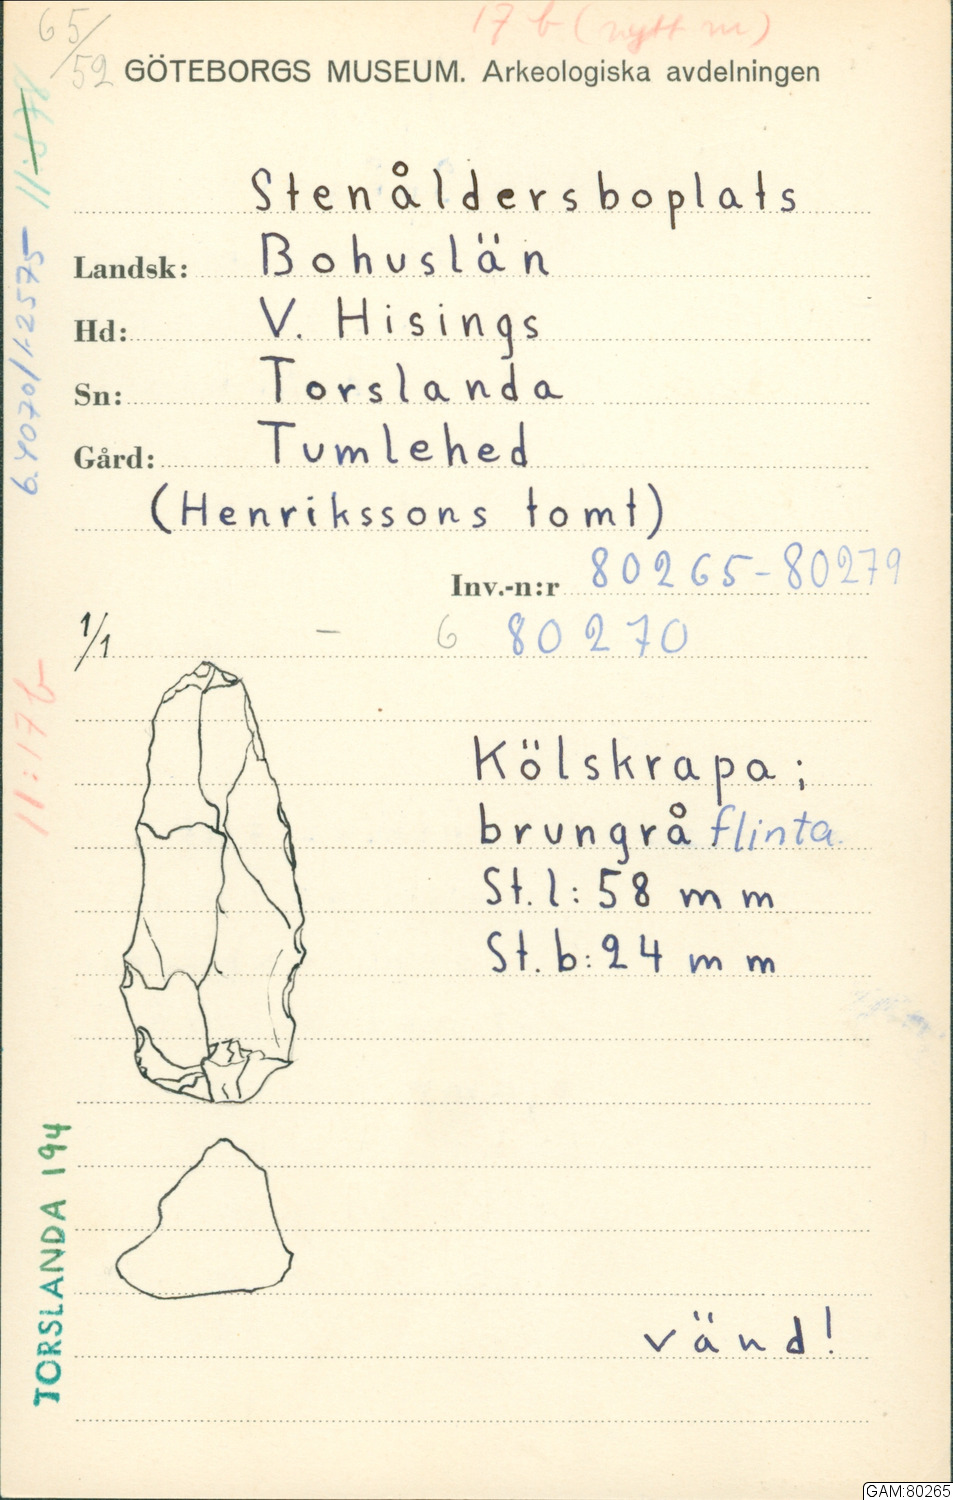 65/52
17 b (nytt nr)
GÖTEBORGS MUSEUM. Arkeologiska avdelningen
Stenåldersboplats
Landsk: Bohuslän
Hd: V. Hisings
Sn: Torslanda
Gård: Tumlehed
(Henrikssons tomt)
Inv.-n:r 80265-80279
1/1 – 6 80270
Kölskrapa;
brungrå flinta.
St. l: 58 mm
St. b: 24 mm
vänd!
11:17 b
TORSLANDA 194
GAM:80265